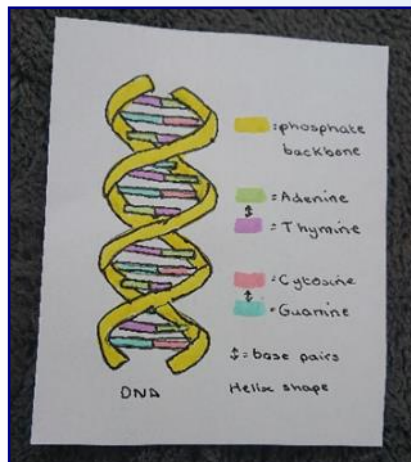 = phosphate
backbone
= Adenine
↕
= Thymine
= Cytosine
↕
= Guanine
↕ = base pairs
DNA
Helix shape